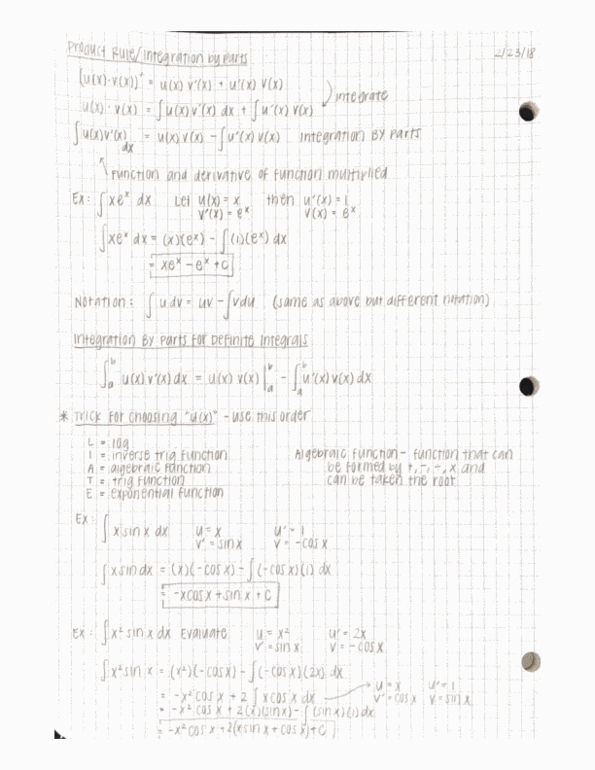 Product Rule/Integration by Parts 2/23/18
(u(x)·v(x))' = u(x) v'(x) + u'(x) v(x)
integrate
u(x) · v(x) = ∫u(x)v'(x) dx + ∫u'(x) v(x)
∫u(x)v'(x) dx = u(x) v(x) - ∫u'(x) v(x) Integration By Parts
function and derivative of function multiplied
Ex: ∫xeˣ dx Let u(x) = x then u'(x) = 1
v'(x) = eˣ v(x) = eˣ
∫xeˣ dx = (x)(eˣ) - ∫(1)(eˣ) dx
= xeˣ - eˣ + C
Notation: ∫u dv = uv - ∫vdu (same as above but different notation)
Integration By Parts for Definite Integrals
∫ₐᵇ u(x) v'(x) dx = u(x) v(x) |ₐᵇ - ∫ₐᵇ u'(x) v(x) dx
* Trick for choosing "u(x)" - use this order
L = log
I = inverse trig function Algebraic function - function that can
A = algebraic function be formed by +, -, ÷, x and
T = trig function can be taken the root
E = exponential function
Ex: ∫x sin x dx u = x u' = 1
v' = sin x v = -cos x
∫x sin dx = (x)(-cos x) - ∫(-cos x)(1) dx
= -xcos x + sin x + C
Ex: ∫x² sin x dx Evaluate u = x² u' = 2x
v' = sin x v = -cos x
∫x² sin x = (x²)(-cos x) - ∫(-cos x)(2x) dx
= -x² cos x + 2 ∫xcos x dx u = x u' = 1
v' = cos x v = sin x
= -x² cos x + 2(x)(sin x) - ∫(sin x)(1) dx
= -x² cos x + 2(x sin x + cos x) + C